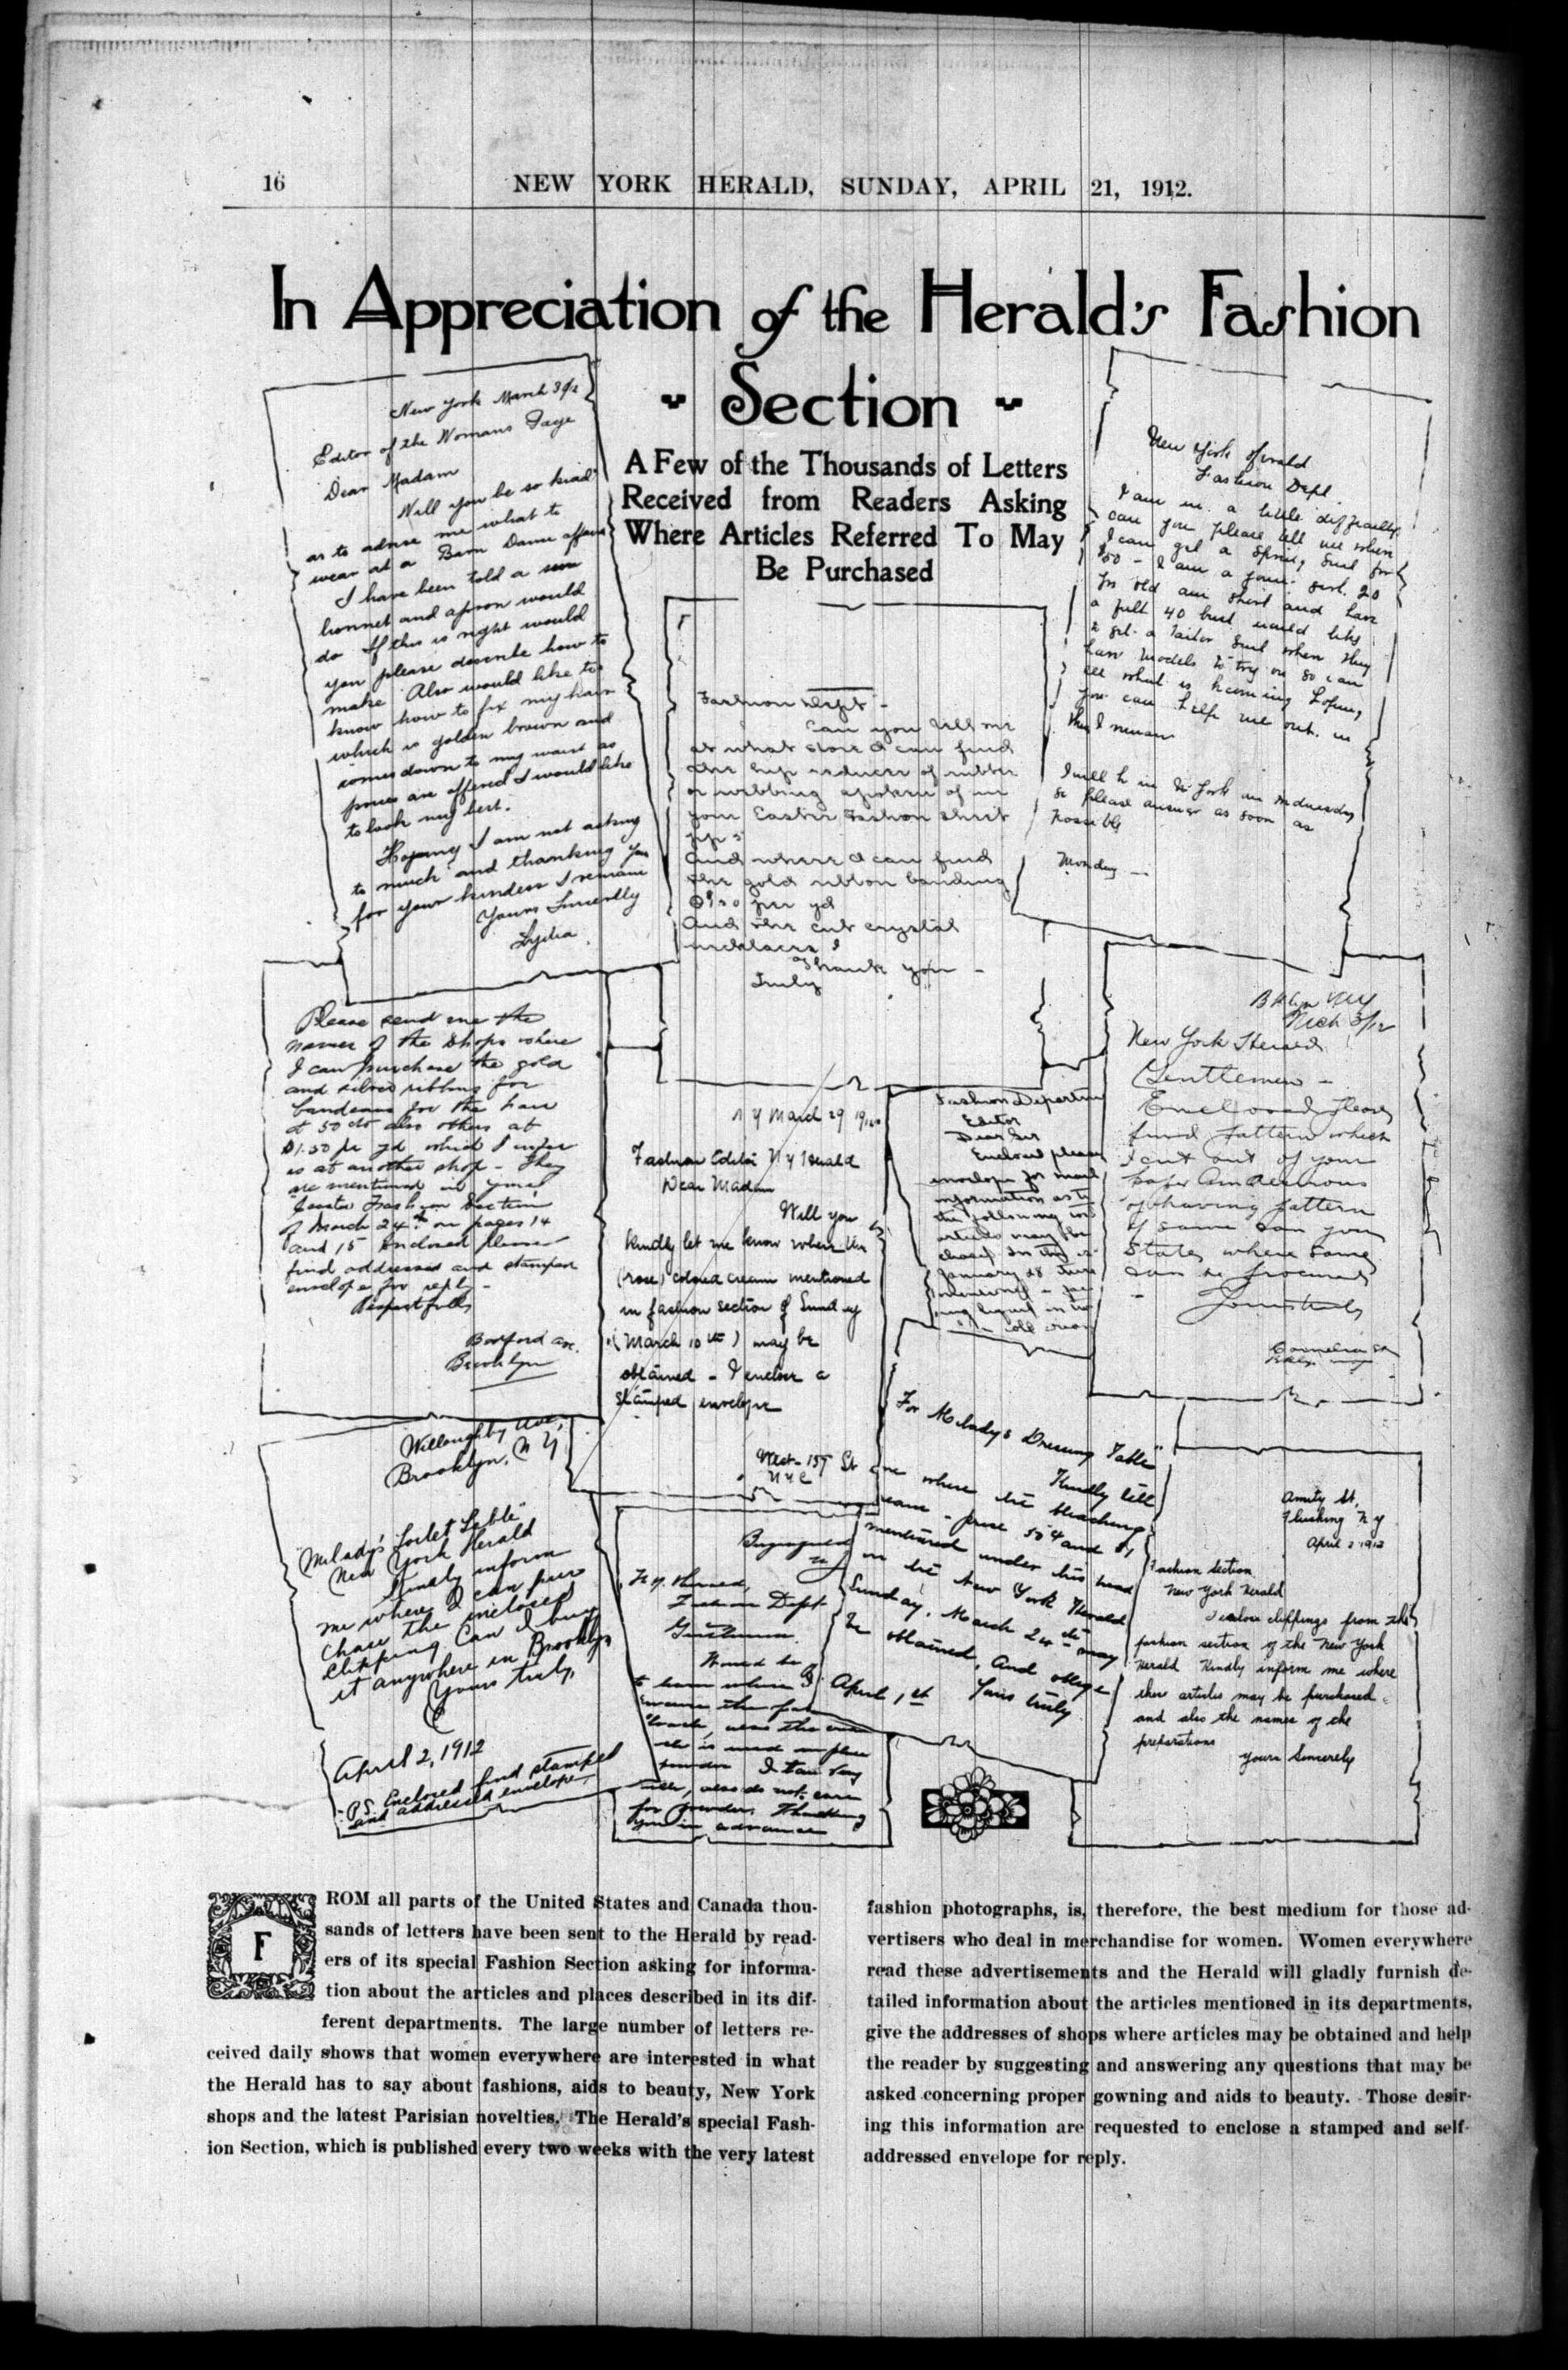 16
NEW YORK HERALD, SUNDAY, APRIL 21, 1912.
In Appreciation of the Herald's Fashion
Section
A Few of the Thousands of Letters
Received from Readers Asking
Where Articles Referred To May
Be Purchased
New York March
Editor of the Womans Page
Dear Madam
Will you be so kind
as to advise me what to
wear at a Barn Dance affair
I have been told a sun
bonnet and apron would
do If this is right would
you please describe how to
make Also would like to
know how to fix my hair
which is golden brown and
comes down to my waist as
prizes are offered I would like
to look my best.
Hoping I am not asking
to much and thanking you
for your kindess I remain
Yours Sincerelly
Lydia.
Fashion Dept -
Can you tell me
at what store I can find
the hip reducer of rubber
or webbing spoken of in
your Easter Fashion sheet
And where I can find
the gold ribbon banding
per yd
And the cut crystal
necklaces?
Thank you -
Truly
New York Herald
Fashion Dept.
I am in a little difficulty
can you please tell me where
I can get a Spring Suit for
$50 - I am a young girl. 20
yrs old am short and have
a full 40 bust would like
to get a Tailor Suit where they
have models to try on so I can
see what is becoming Hoping
you can help me out.
I remain
I will be in N York on Wednesday
so please answer as soon as
possible
Monday —
Please send me the
names of the Shops where
I can purchase the gold
and silver ribbons for
bandeaus for the hair
at 50 cts also others at
$1.50 per yd which I infer
is at another shop - They
are mentioned in your
Easter Fashion Section
of March 24th on pages 14
and 15 Enclosed please
find addressed and stamped
envelope for reply -
Respectfully
Bedford ave.
Brooklyn
N Y March 29
Fashion Editor N Y Herald
Dear Madam
Will you
kindly let me know where the
(rose) colored cream mentioned
in fashion section of Sunday
(March 10th) may be
obtained - I enclose a
stamped envelope
West 157 St
N Y C
Fashion Departm
Editor
Dear Sir
Enclosed please
envelope for
information as to
the following
articles may be
January 28
Bklyn NY
Mch 3/12
New York Herald
Gentlemen -
Enclosed please
find pattern which
I cut out of your
paper Am desirous
of having pattern
of same Can you
State where same
can be procured
Yours truly
Cornelia St
Willoughby Ave,
Brooklyn, N Y
"Milady's Toilet Table"
New York Herald
Kindly inform
me where I can pur
chase the enclosed
clipping. Can I buy
it anywhere in Brooklyn
Yours truly,
April 2, 1912
P.S. Enclosed find stamped
and addressed envelope
N.Y. Herald,
Fashion Dept
Gentlemen.
Would be
to learn where I
is used in place
powder
also do not care
for powders Thanking
you in advance
For Milady's Dressing Table"
Kindly tell
me where the bleaching
cream - price 50¢ and $1
mentioned under this head
in the New York Herald
Sunday, March 24th may
be obtained, And oblige
Yours truly
April 1st
Amity St,
Flushing N Y
April 2 1912
Fashion Section
New York Herald
I enclose clippings from the
fashion section of the New York
Herald Kindly inform me where
these articles may be purchased
and also the names of the
preparations
Yours Sincerely
FROM all parts of the United States and Canada thou-
sands of letters have been sent to the Herald by read-
ers of its special Fashion Section asking for informa-
tion about the articles and places described in its dif-
ferent departments. The large number of letters re-
ceived daily shows that women everywhere are interested in what
the Herald has to say about fashions, aids to beauty, New York
shops and the latest Parisian novelties. The Herald's special Fash-
ion Section, which is published every two weeks with the very latest
fashion photographs, is, therefore, the best medium for those ad-
vertisers who deal in merchandise for women. Women everywhere
read these advertisements and the Herald will gladly furnish de-
tailed information about the articles mentioned in its departments,
give the addresses of shops where articles may be obtained and help
the reader by suggesting and answering any questions that may be
asked concerning proper gowning and aids to beauty. Those desir-
ing this information are requested to enclose a stamped and self-
addressed envelope for reply.